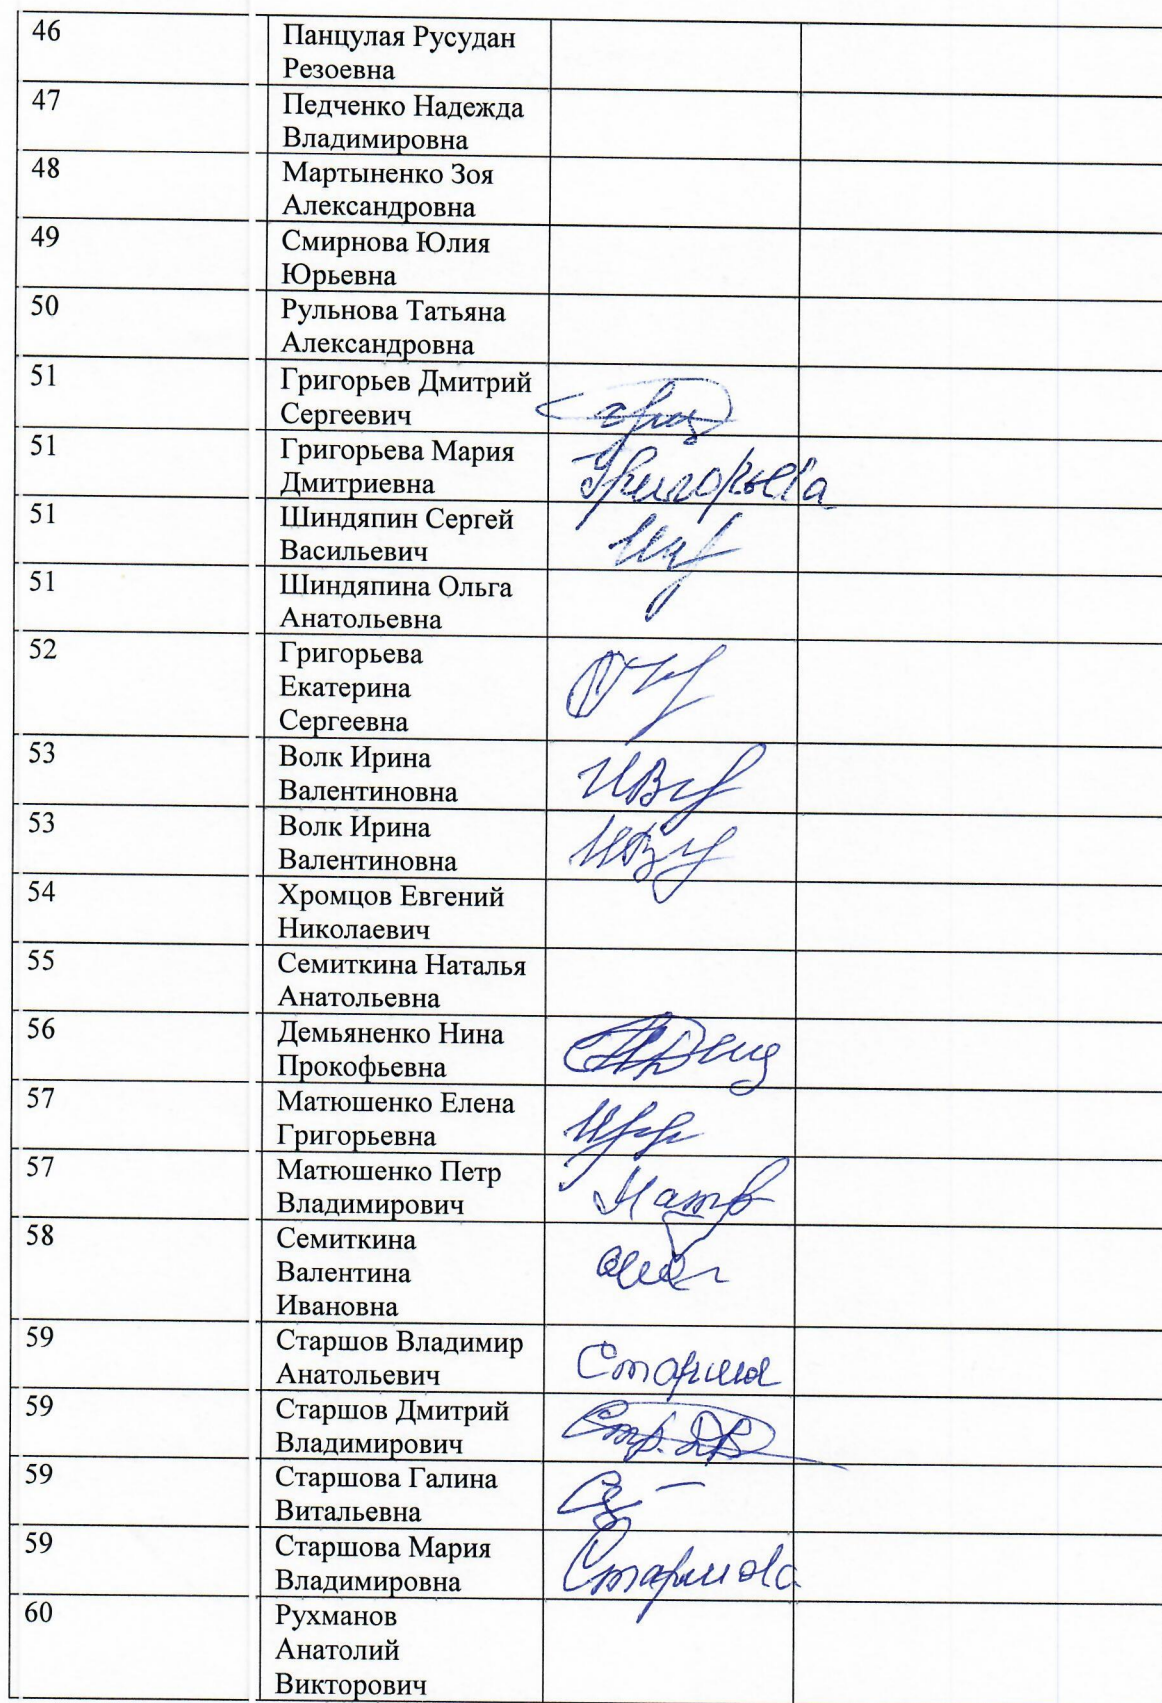 46
Панцулая Русудан
Резоевна
47
Педченко Надежда
Владимировна
48
Мартыненко Зоя
Александровна
49
Смирнова Юлия
Юрьевна
50
Рульнова Татьяна
Александровна
51
Григорьев Дмитрий
Сергеевич
51
Григорьева Мария
Дмитриевна
Григорьева
51
Шиндяпин Сергей
Васильевич
51
Шиндяпина Ольга
Анатольевна
52
Григорьева
Екатерина
Сергеевна
53
Волк Ирина
Валентиновна
53
Волк Ирина
Валентиновна
54
Хромцов Евгений
Николаевич
55
Семиткина Наталья
Анатольевна
56
Демьяненко Нина
Прокофьевна
57
Матюшенко Елена
Григорьевна
57
Матюшенко Петр
Владимирович
58
Семиткина
Валентина
Ивановна
59
Старшов Владимир
Анатольевич
59
Старшов Дмитрий
Владимирович
59
Старшова Галина
Витальевна
59
Старшова Мария
Владимировна
Старшова
60
Рухманов
Анатолий
Викторович